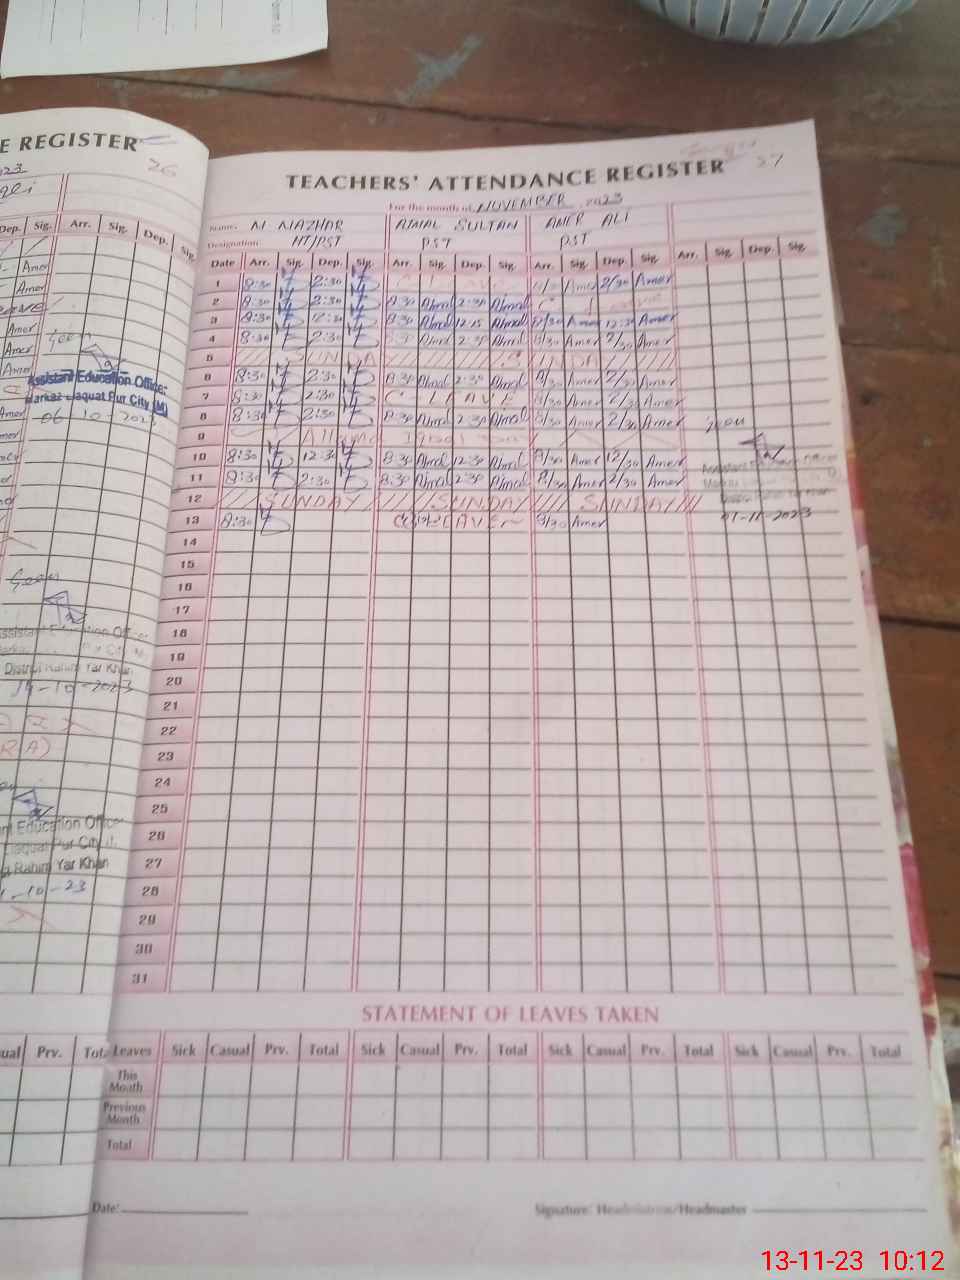 E REGISTER
26
Dep. Sig. Arr. Sig. Dep. Sig.
Amer
Amer
Amer
Amer
Amer
Assistant Education Officer
Markaz Liaquat Pur City (M)
06-10-2023
Seen
District Rahim Yar Khan
14-10-2023
Education Officer
Liaquat Pur City
Rahim Yar Khan
-10-23
27
TEACHERS' ATTENDANCE REGISTER
For the month of NOVEMBER, 2023
Name: M NAZHAR AJMAL SULTAN AMER ALI
Designation HT/PST PST PST
Date Arr. Sig. Dep. Sig. Arr. Sig. Dep. Sig. Arr. Sig. Dep. Sig. Arr. Sig. Dep. Sig.
1 8:30 2:30 8/30 Amer 2/30 Amer
2 8:30 2:30 8:30 Ajmal 2:30 Ajmal
3 8:30 12:30 8:30 Ajmal 12:15 Ajmal 8/30 Amer 12:30 Amer
4 8:30 2:30 8:30 Ajmal 2:30 Ajmal 8/30 Amer 2/30 Amer
5 SUNDAY SUNDAY
6 8:30 2:30 8:30 Ajmal 2:30 Ajmal 8/30 Amer 2/30 Amer
7 8:30 2:30 C-LEAVE 8/30 Amer 2/30 Amer
8 8:30 2:30 8:30 Ajmal 2:30 Ajmal 8/30 Amer 2/30 Amer
9 Allama Iqbal
10 8:30 12:30 8:30 Ajmal 12:30 Ajmal 8/30 Amer 12/30 Amer
11 8:30 2:30 8:30 Ajmal 2:30 Ajmal 8/30 Amer 2/30 Amer
12 SUNDAY SUNDAY SUNDAY
13 8:30 LEAVE 8/30 Amer
Seen
11-2023
14
15
16
17
18
19
20
21
22
23
24
25
26
27
28
29
30
31
STATEMENT OF LEAVES TAKEN
Prv. Leaves Sick Casual Prv. Total Sick Casual Prv. Total Sick Casual Prv. Total Sick Casual Prv. Total
This Month
Previous Month
Total
Date: Signature: Headmistress/Headmaster
13-11-23 10:12